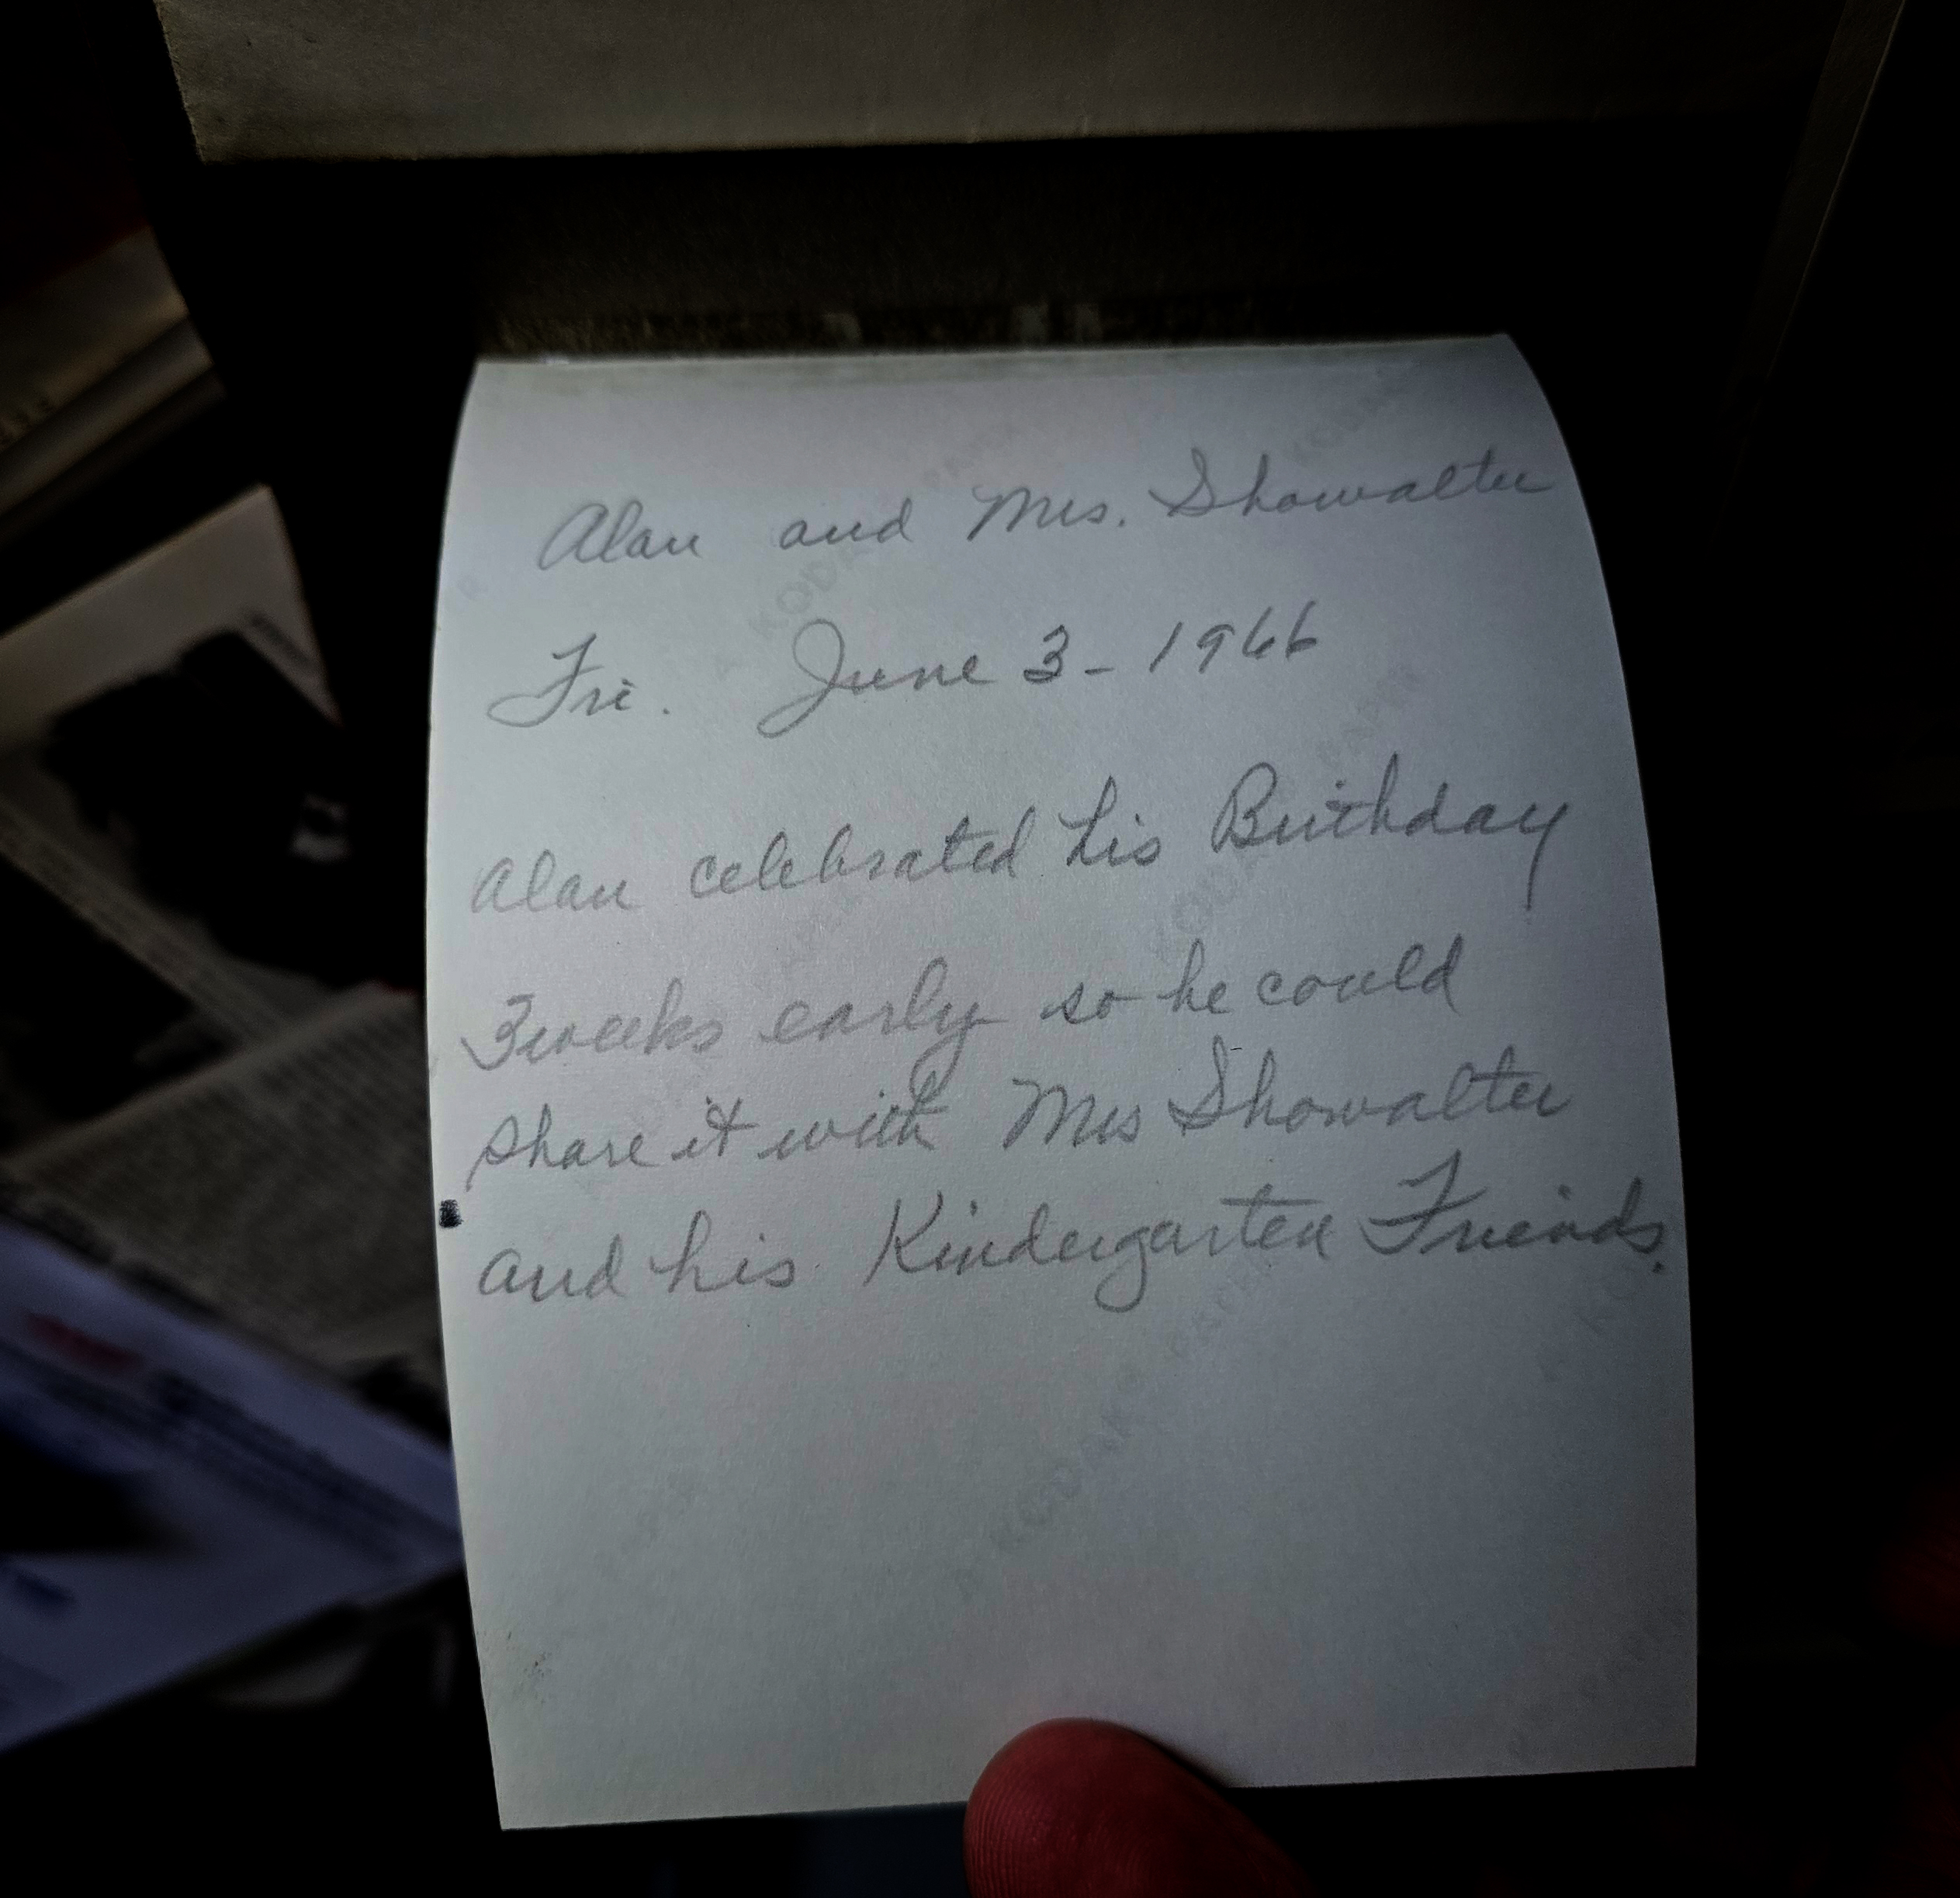 Alan and Mrs. Showalter
Fri. June 3 - 1966
Alan celebrated his Birthday
3 weeks early so he could
share it with Mrs Showalter
and his Kindergarten Friends.
KODAK